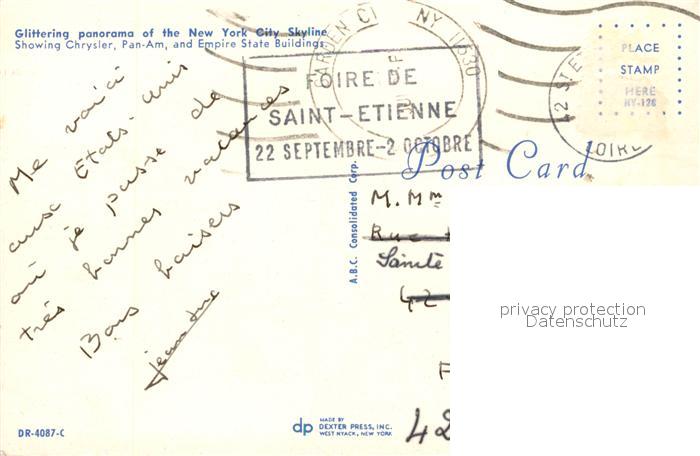 Glittering panorama of the New York City Skyline
Showing Chrysler, Pan-Am, and Empire State Buildings
GARDEN CI NY 11530
FOIRE DE
SAINT-ETIENNE
22 SEPTEMBRE-2 OCTOBRE
PLACE
STAMP
HERE
NY-126
42 ST E
LOIRE
Post Card
Me voici
aux Etats-unis
où je passe de
très bonnes vacances
Bons baisers
A.B.C. Consolidated Corp.
M. Mm
Rue
Sainte
42
F
42
privacy protection
Datenschutz
DR-4087-C
dp
MADE BY
DEXTER PRESS, INC.
WEST NYACK, NEW YORK